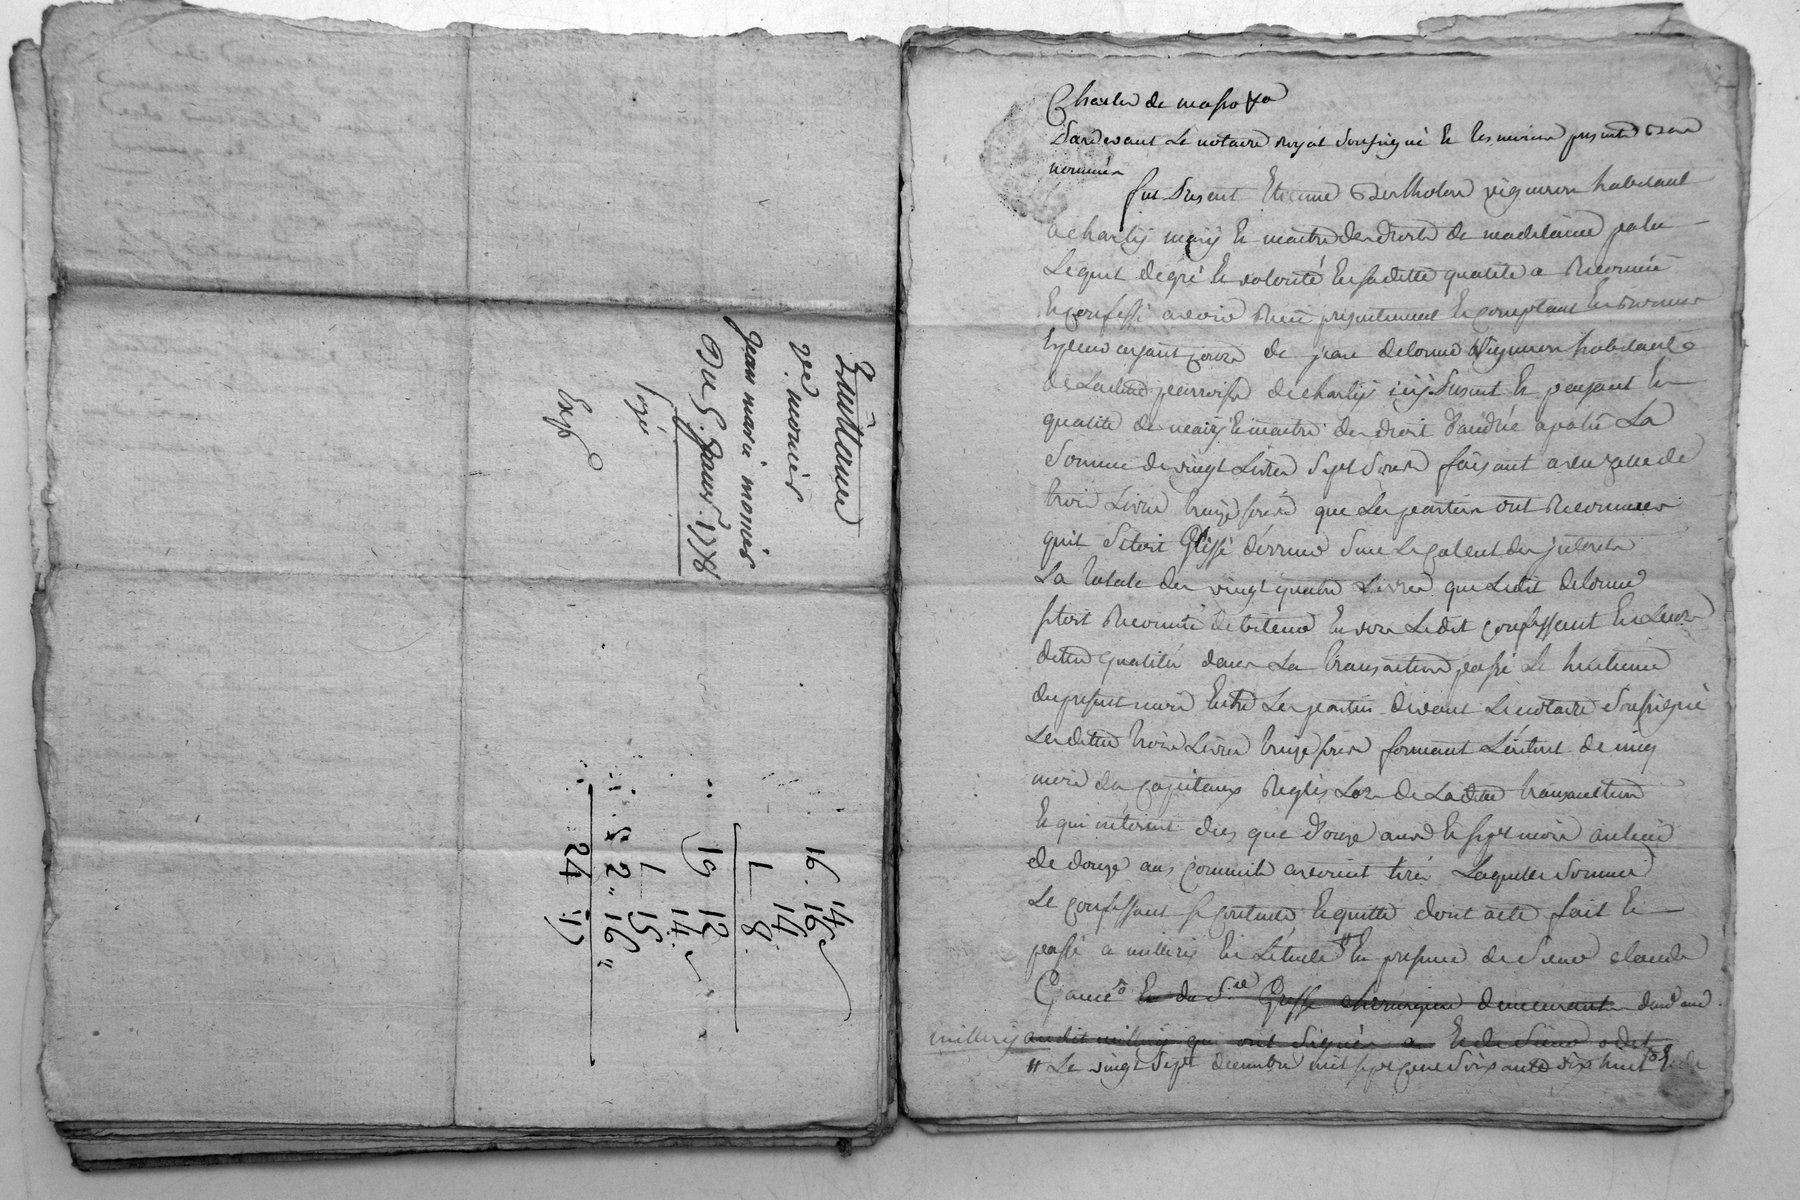 Quittance
Ve monier
jean marie monier
Du 5 Janv. 1778
Exp
16. 16
14
1 8
19 12
14
1 15
2 " 16 "
24 " 1)
Pardevant Le notaire royal soussigné et les temoins presents et
nommés
fut Present Etienne Bertholon vigneron habitant
a charly mary et maitre des droits de madelaine
Lequel de gré et volonté En saditte qualité a Reconnu
Et confessé avoir Receu presentement Et comptant En
de jean delorme Vigneron habitant
de Laditte parroisse de charly icy Present Et payant En
qualité de mary Et maitre des droits La
Somme de vingt Livres Sept Sous faisant avec celle de
trois Livres treize sous que Les parties ont Reconnues
quil S'etoit Glissé d'erreur Sur Le calcul des interets
La totale des vingt quatre Livres que Ledit delorme
s'etoit Reconnu debiteur Envers Ledit confessant En Leurs
dittes qualités dans La transaction passé Le huitieme
du present mois Entre Les parties devant Le notaire Soussigné
Lesdittes trois Livres treize sous formant L'interet de cinq
mois des capitaux Reglés Lors de Laditte transaction
Et qui n'etoient dus que d'onze ans Et sept mois au lieu
de douze ans comme ils avoient tirés Laquelle Somme
Le confessant se contente Et quitte dont acte fait Et
passé a millery En L'etude # En presence de Sieur claude
Et du Sr. Gresse chirurgien demeurant
millery audit millery qui ont Signés Et de Sieur
# Le vingt Sept decembre mil sept cent Soixante dix huit